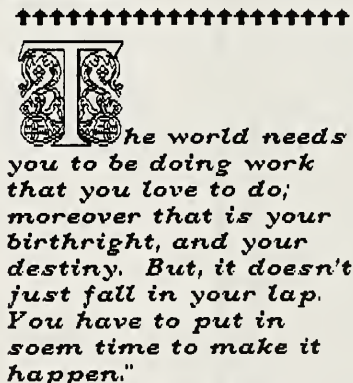 The world needs
you to be doing work
that you love to do;
moreover that is your
birthright, and your
destiny. But, it doesn't
just fall in your lap.
You have to put in
soem time to make it
happen."